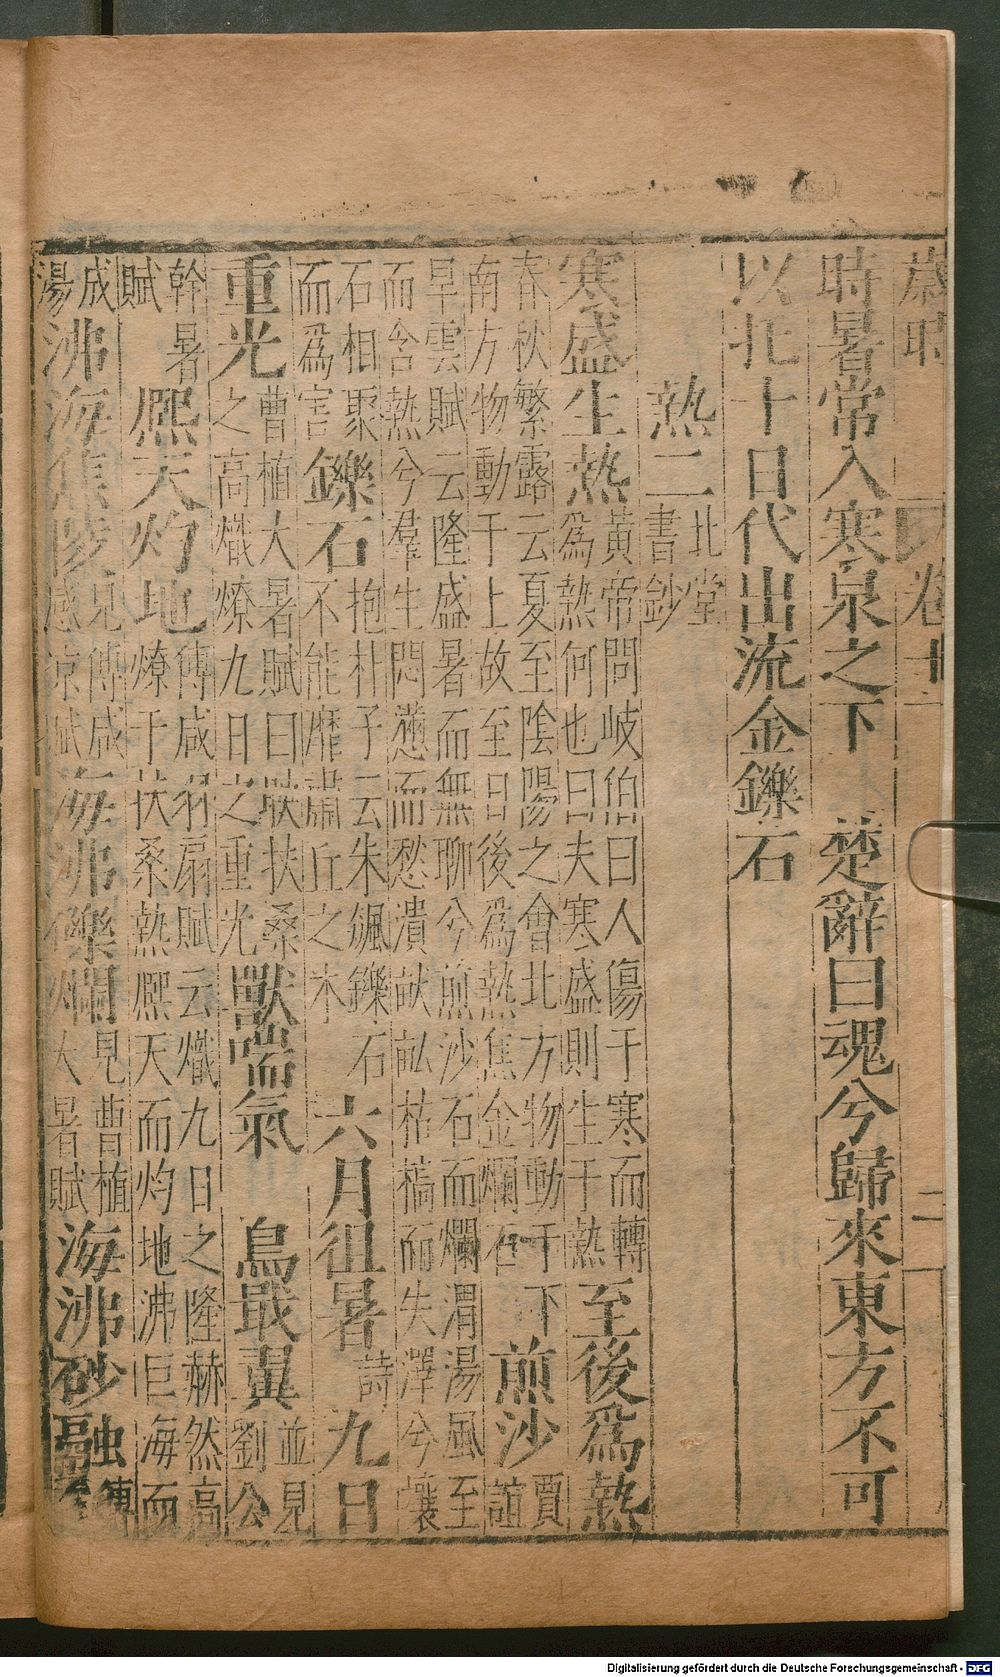 歲時 卷十二 二
時暑常入寒泉之下 楚辭曰魂兮歸來東方不可
以托十日代出流金鑠石
熱二 北堂書鈔
寒盛生熱 黃帝問岐伯曰人傷于寒而轉爲熱何也曰夫寒盛則生于熱 至後爲熱
春秋繁露云夏至陰陽之會北方物動于下南方物動于上故至日後爲熱焦金爛石 煎沙 賈誼
旱雲賦云隆盛暑而無聊兮煎沙石而爛渭湯風至而含熱兮羣生悶懣而愁憒畎畝枯槁而失澤兮壤
石相聚而爲害 鑠石 抱朴子云朱飈鑠石不能靡肅丘之木 六月徂暑 詩 九日
重光 曹植大暑賦曰映扶桑之高熾燎九日之重光 獸喘氣 鳥戢翼 並見劉公
幹暑賦 熈天灼地 傅咸羽扇賦云熾九日之隆赫然高燎于扶桑熱熈天而灼地沸巨海而
成湯 沸海焦陵 見傅咸感凉賦 海沸礫爛 見曹植大暑賦 海沸砂融 傅
Digitalisierung gefördert durch die Deutsche Forschungsgemeinschaft - DFG